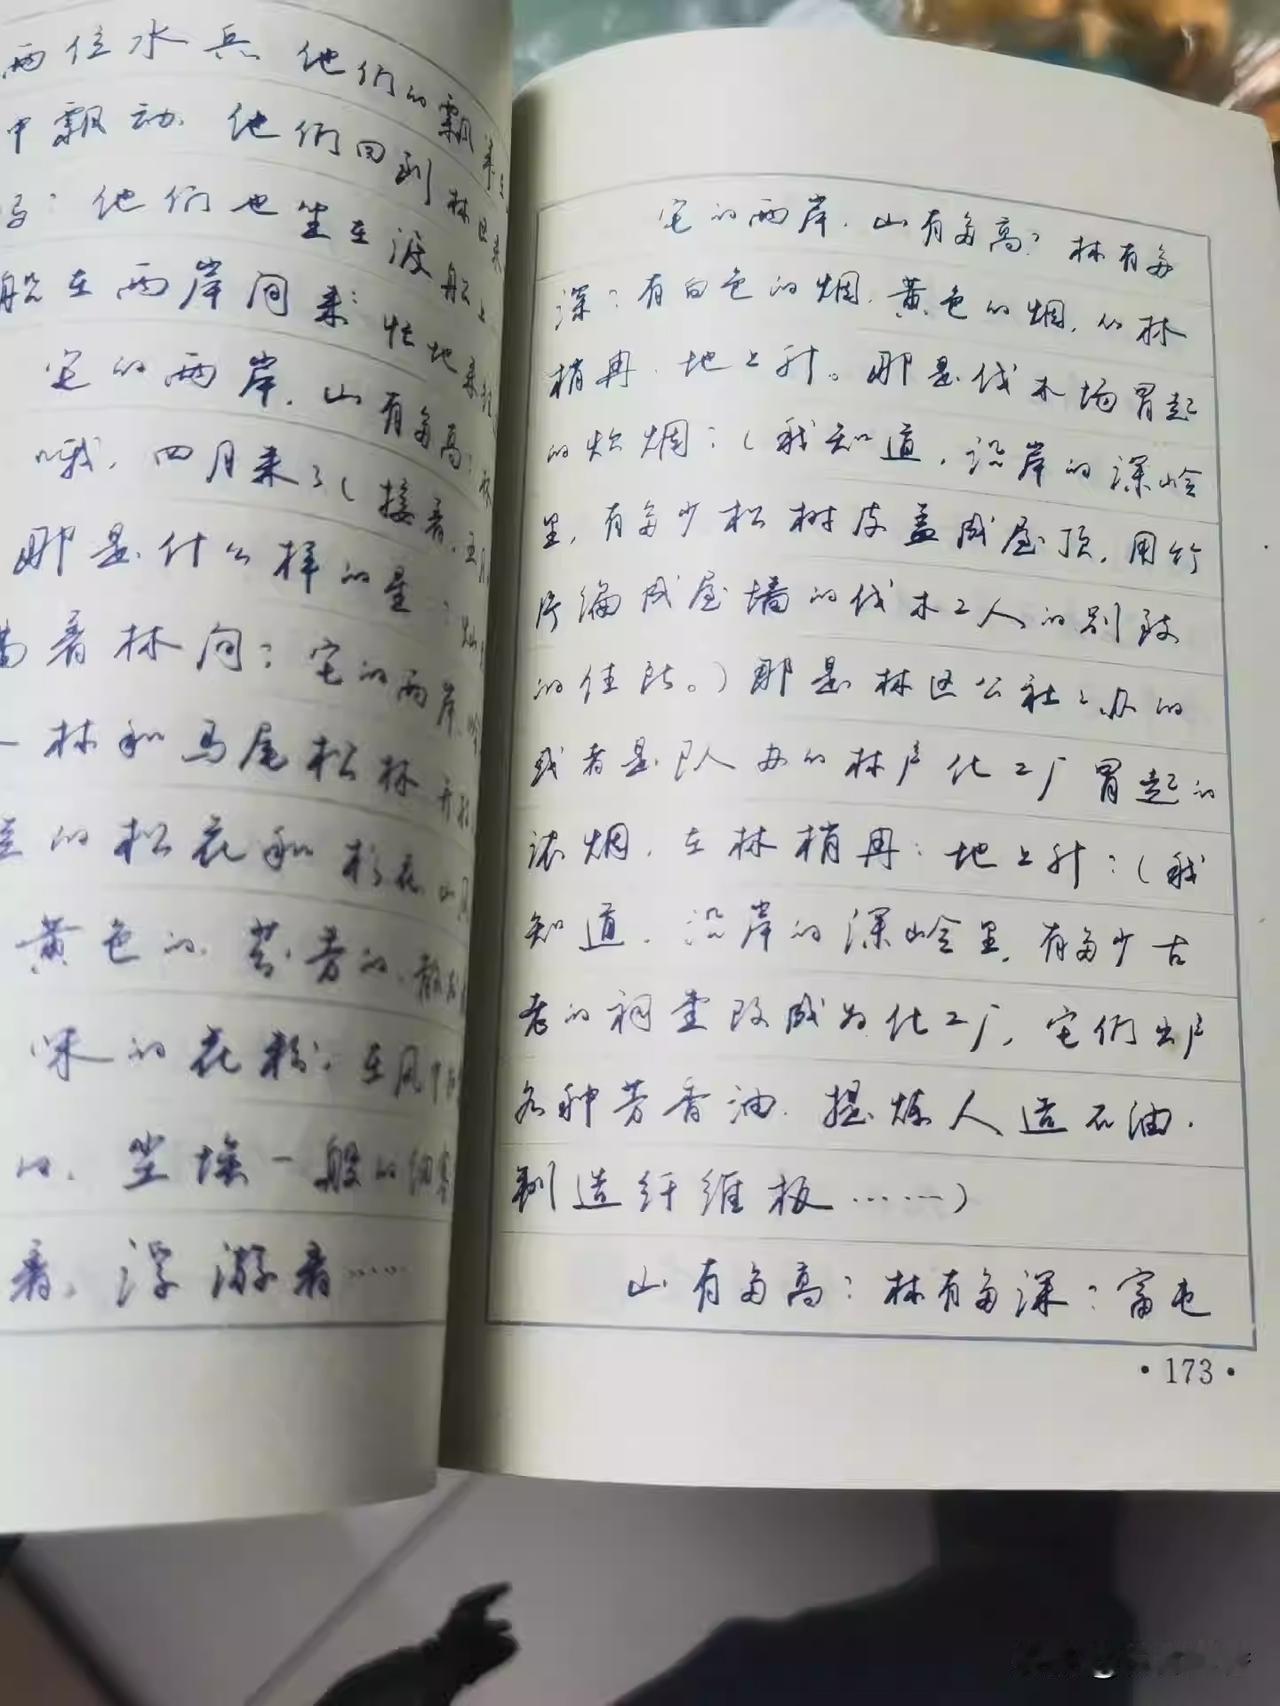 两位水兵 他们的飘带
中飘动. 他们回到林区来
吗: 他们也坐在渡船上
船在两岸间来: 忙地来
它的两岸. 山有多高: 林
哦, 四月来了(接着, 五月
那是什么样的星: 灿
着林间: 它的两岸
林和马尾松林 开
的松花和杉花 山风
黄色的. 芬芳的.
味的花粉. 在风中
的. 尘埃一般的细
着, 浮游着……
它的两岸. 山有多高: 林有多
深: 有白色的烟. 黄色的烟, 从林
梢冉. 地上升。那是伐木场冒起
的炊烟: (我知道, 沿岸的深岭
里, 有多少松树皮盖成屋顶, 用竹
片编成屋墙的伐木工人的别致
的住所。) 那是林区公社: 办的
或者是队人办的林产化工厂冒起的
浓烟. 在林梢冉: 地上升: (我
知道. 沿岸的深岭里, 有多少古
老的祠堂改成为化工厂, 它们出产
各种芳香油. 提炼人造石油.
制造纤维板……)
山有多高: 林有多深: 富屯
·173·